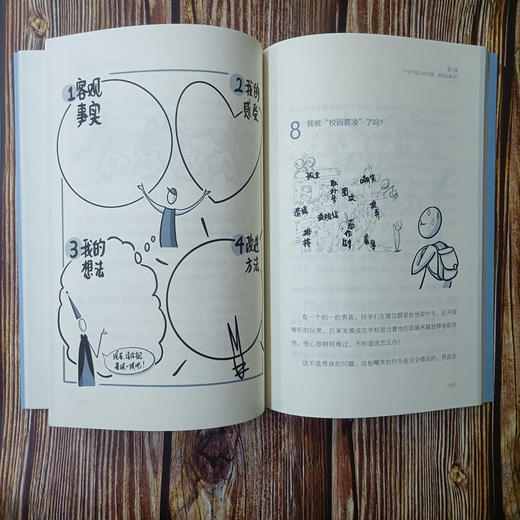 1客观
事实
2我的
感受
3我的
想法
4改进
方法
现在请你配
第三章
8 我被“校园霸凌”了吗?
孤立
取外号
嘲笑
排挤
有一个初一的男孩,同学们在微信群里给他取外号,还开很
难听的玩笑,后来发展成在学校里当着他的面越来越放肆地取笑
他。他心里特别难过,不知道该怎么办?
这不是男孩的问题,这些嘲笑的行为是完全错误的。男孩在